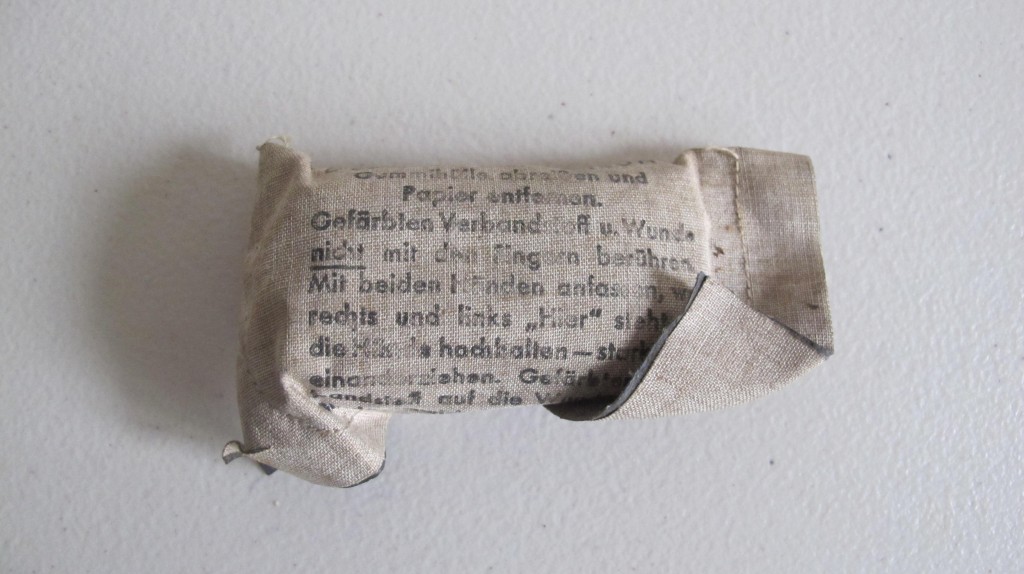 Gummihülle abreißen und
Papier entfernen.
Gefärbten Verbandstoff u. Wunde
nicht mit den Fingern berühren
Mit beiden Händen anfassen, w
rechts und links „Hier“ steht
die Hände hochhalten — star
einanderziehen. Gefärbten
bandstoff auf die W